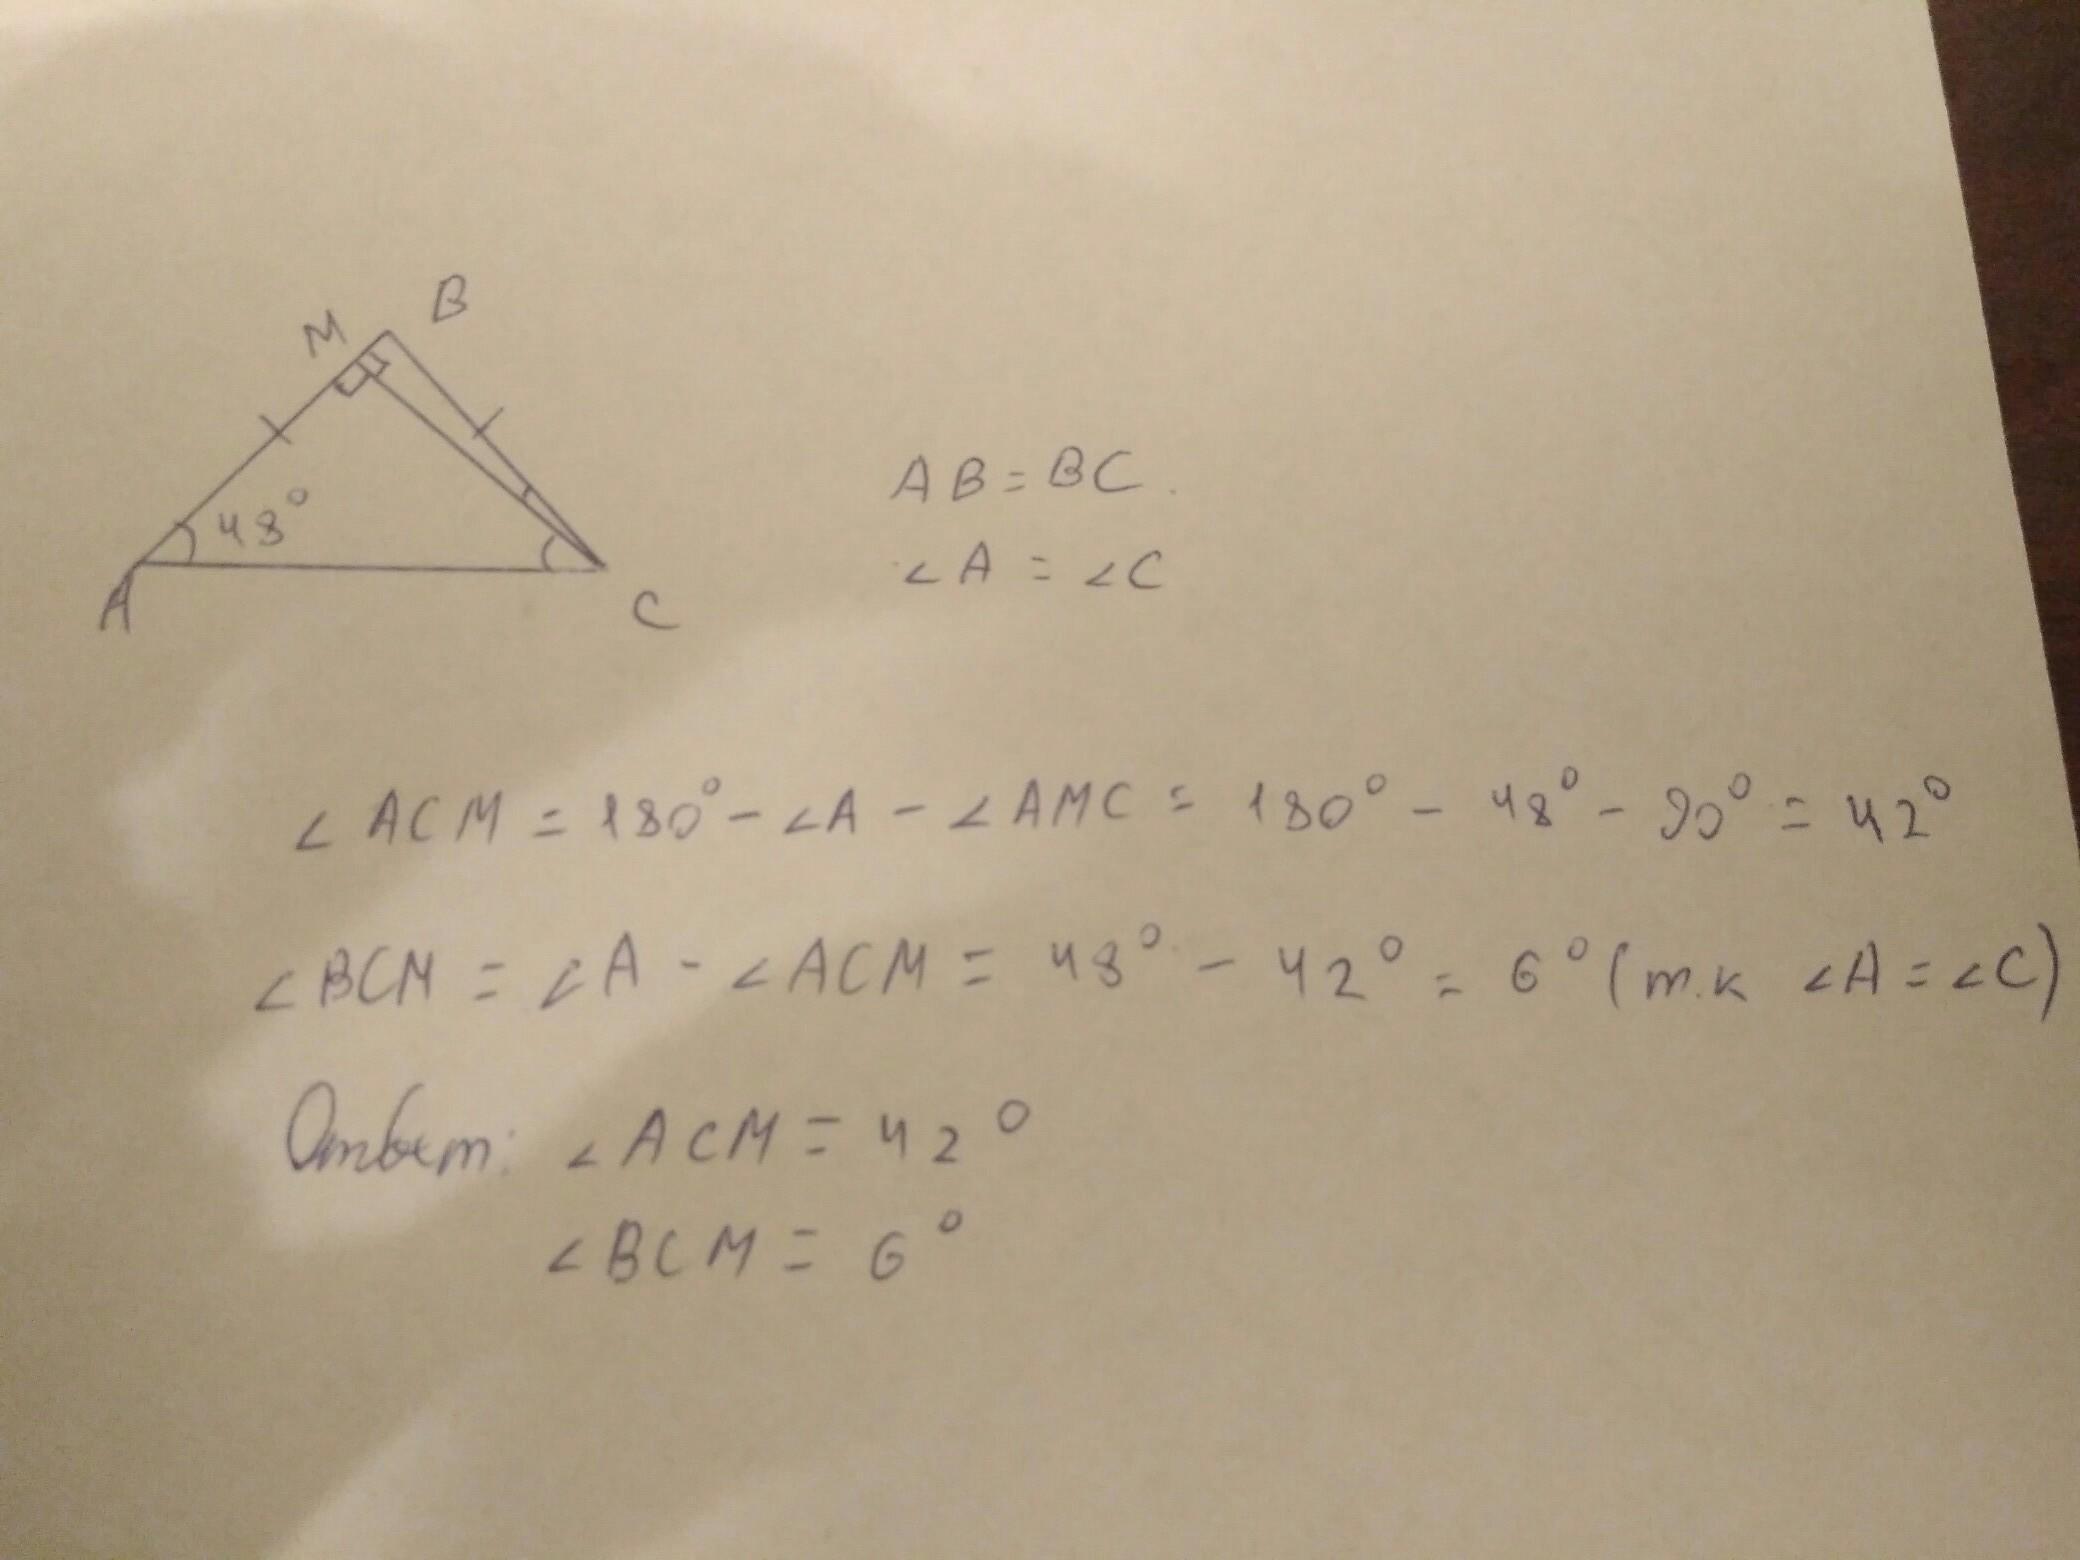 M B
48°
A C
AB = BC.
∠A = ∠C
∠ACM = 180° - ∠A - ∠AMC = 180° - 48° - 90° = 42°
∠BCM = ∠A - ∠ACM = 48° - 42° = 6° (т.к ∠A = ∠C)
Ответ: ∠ACM = 42°
∠BCM = 6°